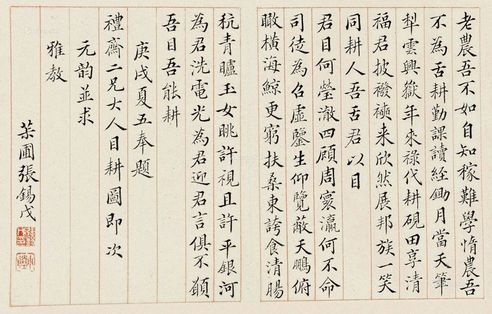 老農吾不如自知稼難學惰農吾
不為舌耕勤課讀經鋤月當天筆
犁雲興嶽年來祿代耕硯田享清
福君披襏襫來欣然展邦族一笑
同耕人吾舌君以目
君目何瑩澈四顧周寰瀛何不命
司徒為召虛鑒生仰覽蔽天鵬俯
瞰橫海鯨更窮扶桑東誇食清腸
秔青矑玉女眺許視且許平銀河
為君洗電光為君迎君言俱不願
吾目吾能耕
庚戌夏五奉題
禮齋二兄大人目耕圖即次
元韵並求
雅教
葉圃張錫戊